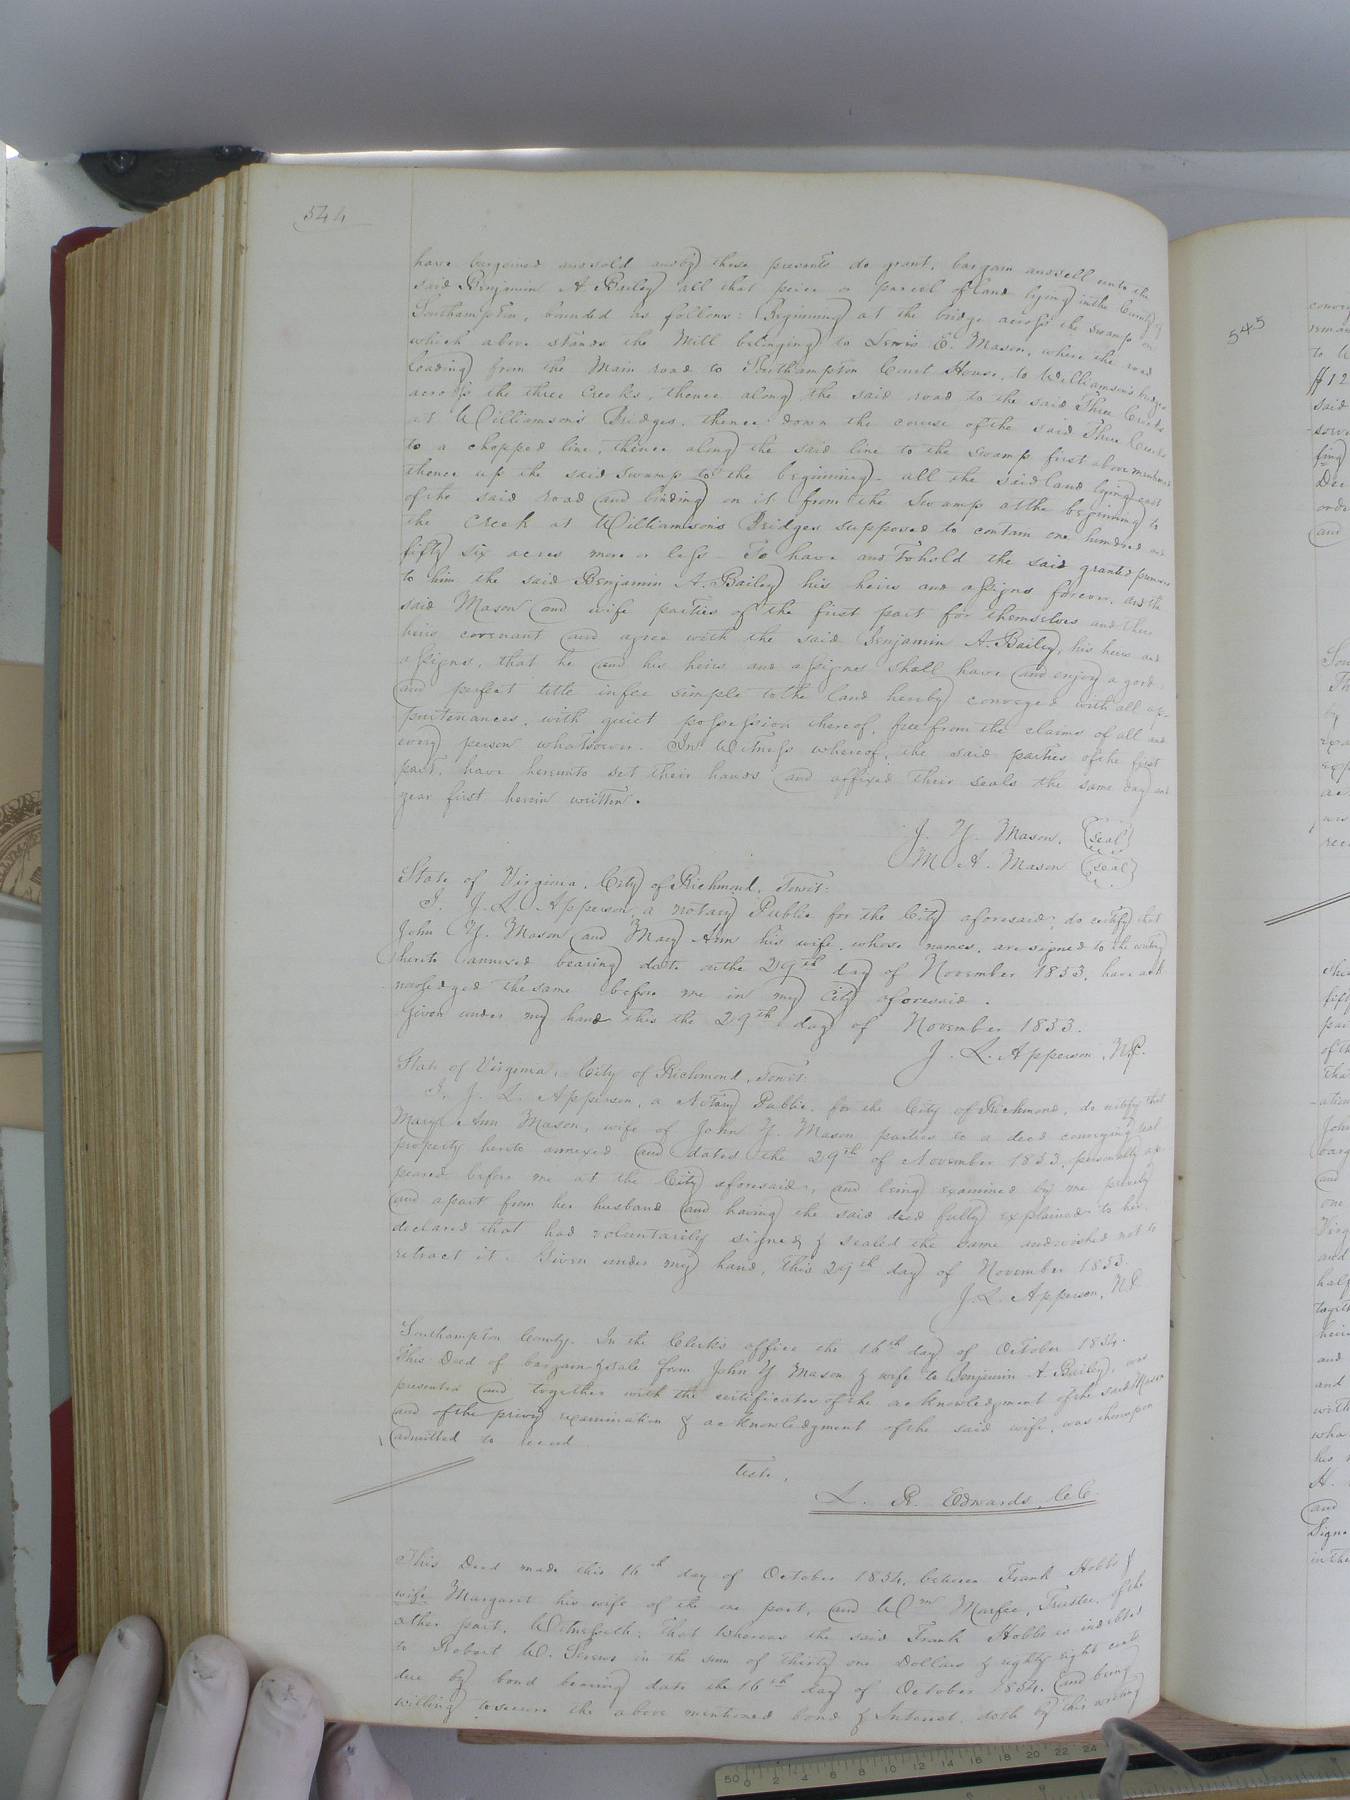 544
have bargained and sold and by these presents do grant, bargain and sell unto the
said Benjamin A. Bailey all that peice or parcel of land lying in the County of
Southampton, bounded as follows: Beginning at the bridge across the swamp on
which above stands the Mill belonging to Lewis E. Mason, where the road
leading from the Main road to Southampton Court House, to Williamson's bridges
across the three Creeks, thence along the said road to the said Three Creeks
at Williamson's Bridges, thence down the course of the said Three Creeks
to a chopped line, thence along the said line to the swamp first above mentioned
thence up the said swamp to the beginning - all the said land lying east
of the said road and binding on it from the Swamp at the beginning to
the Creek at Williamson's Bridges supposed to contain one hundred and
fifty six acres more or less - To have and to hold the said granted premises
to him the said Benjamin A. Bailey his heirs and assigns forever. and the
said Mason and wife parties of the first part for themselves and their
heirs covenant and agree with the said Benjamin A. Bailey, his heirs and
assigns, that he and his heirs and assigns shall have and enjoy a good
and perfect title in fee simple to the land hereby conveyed with all ap-
purtenances, with quiet possession thereof, free from the claims of all and
every person whatsoever. In Witness whereof, the said parties of the first
part, have hereunto set their hands and affixed their seals the same day and
year first herein written.
J. Y. Mason, (seal)
M. A. Mason (seal)
State of Virginia, City of Richmond, Towit:
I, J. L. Apperson, a notary Public for the City aforesaid; do certify that
John Y. Mason and Mary Ann his wife, whose names, are signed to the writing
hereto annexed bearing date on the 29th day of November 1853, have ack
nowledged the same before me in my City aforesaid.
Given under my hand this the 29th day of November 1853.
J. L. Apperson, N.P.
State of Virginia, City of Richmond, Towit:
I, J. L. Apperson, a Notary Public, for the City of Richmond, do certify that
Mary Ann Mason, wife of John Y. Mason, parties to a deed conveying real
property hereto annexed and dated the 29th of November 1853, personally ap
peared before me at the City aforesaid, and being examined by me privily
and apart from her husband and having the said deed fully explained to her
declared that had voluntarily signed & sealed the same and wished not to
retract it. Given under my hand, this 29th day of November 1853.
J. L. Apperson, N.P.
Southampton County. In the Clerk's office the 16th day of October 1854.
This Deed of bargain & sale from John Y Mason & wife to Benjamin A. Bailey, was
presented and together with the certificates of the acknowledgment of the said Mason
and of the privy examination & acknowledgment of the said wife, was thereupon
admitted to record.
Teste,
L. R. Edwards, C.C.
This Deed made this 16th day of October 1854, between Frank Hobbs &
wife Margaret his wife of the one part, and Wm Marfee, Trustee, of the
other part, Witnesseth: That whereas the said Frank Hobbs is indebted
to Robert W. Screws in the sum of thirty one Dollars & eighty eight cents
due by bond bearing date the 16th day of October 1854. and being
willing to secure the above mentioned bond & Interest, doth by this writing
545
to
said
Dec
and
by
of th
one
and
half
heirs
and
and
with
who
his
H.
and
Signe
in the
50 0 2 4 6 8 10 12 14 16 18 20 22 24